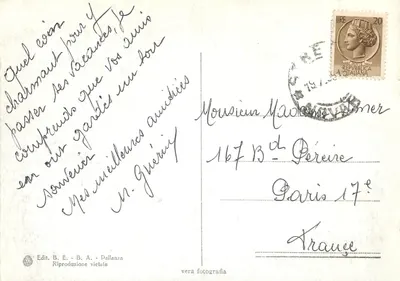 Quel coin
charmant pour y
passer ses vacances, je
comprends que vos amis
en ont gardés un bon
souvenir
Mes meilleures amitiés
M. Guérin
LIRE 20
Monsieur Madame
167 Bd Péreire
Paris 17e
France
Ediz. B. E. - B. A. - Pallanza
Riproduzione vietata
vera fotografia